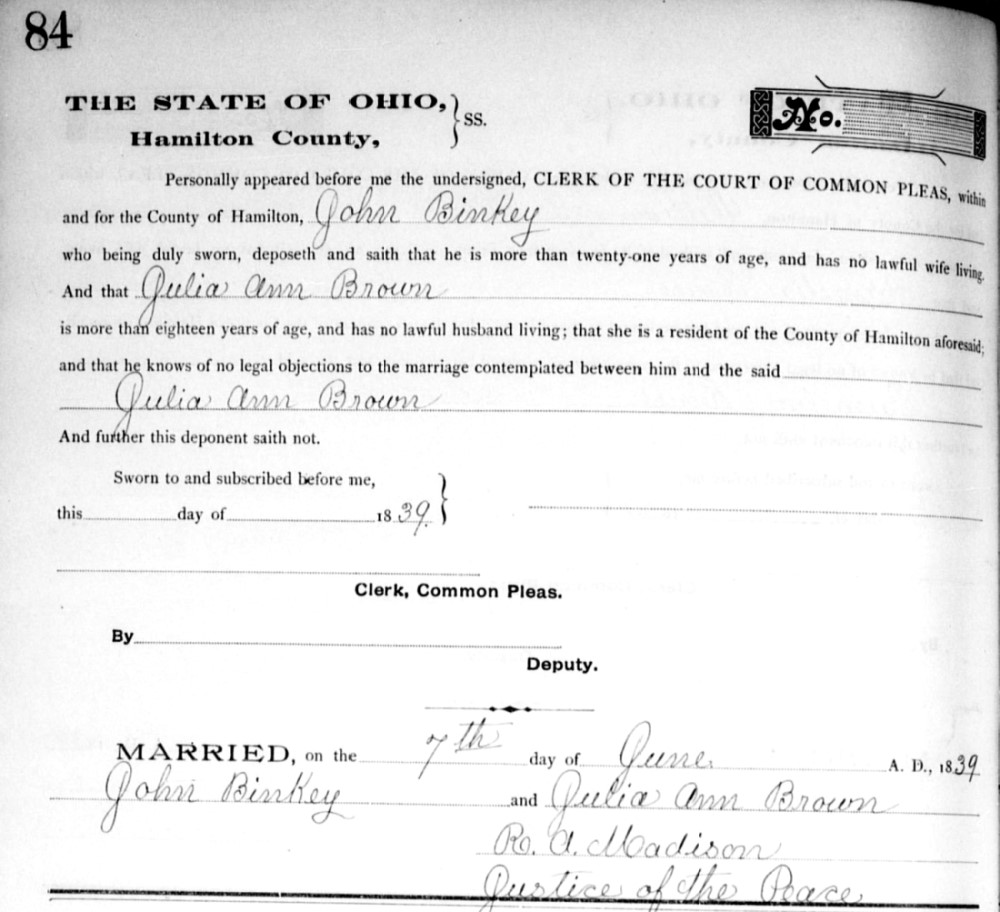 84
THE STATE OF OHIO, } SS.
Hamilton County,
No.
Personally appeared before me the undersigned, CLERK OF THE COURT OF COMMON PLEAS, within
and for the County of Hamilton, John Binkey
who being duly sworn, deposeth and saith that he is more than twenty-one years of age, and has no lawful wife living.
And that Julia Ann Brown
is more than eighteen years of age, and has no lawful husband living; that she is a resident of the County of Hamilton aforesaid;
and that he knows of no legal objections to the marriage contemplated between him and the said
Julia Ann Brown
And further this deponent saith not.
Sworn to and subscribed before me,
this day of 1839.
Clerk, Common Pleas.
By
Deputy.
MARRIED, on the 7th day of June A. D., 1839
John Binkey and Julia Ann Brown
R. A. Madison
Justice of the Peace